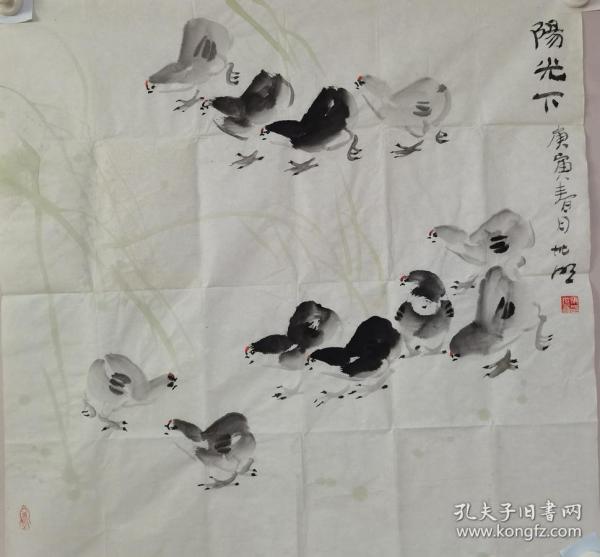 陽光下
庚寅春日
孔夫子旧书网
www.kongfz.com